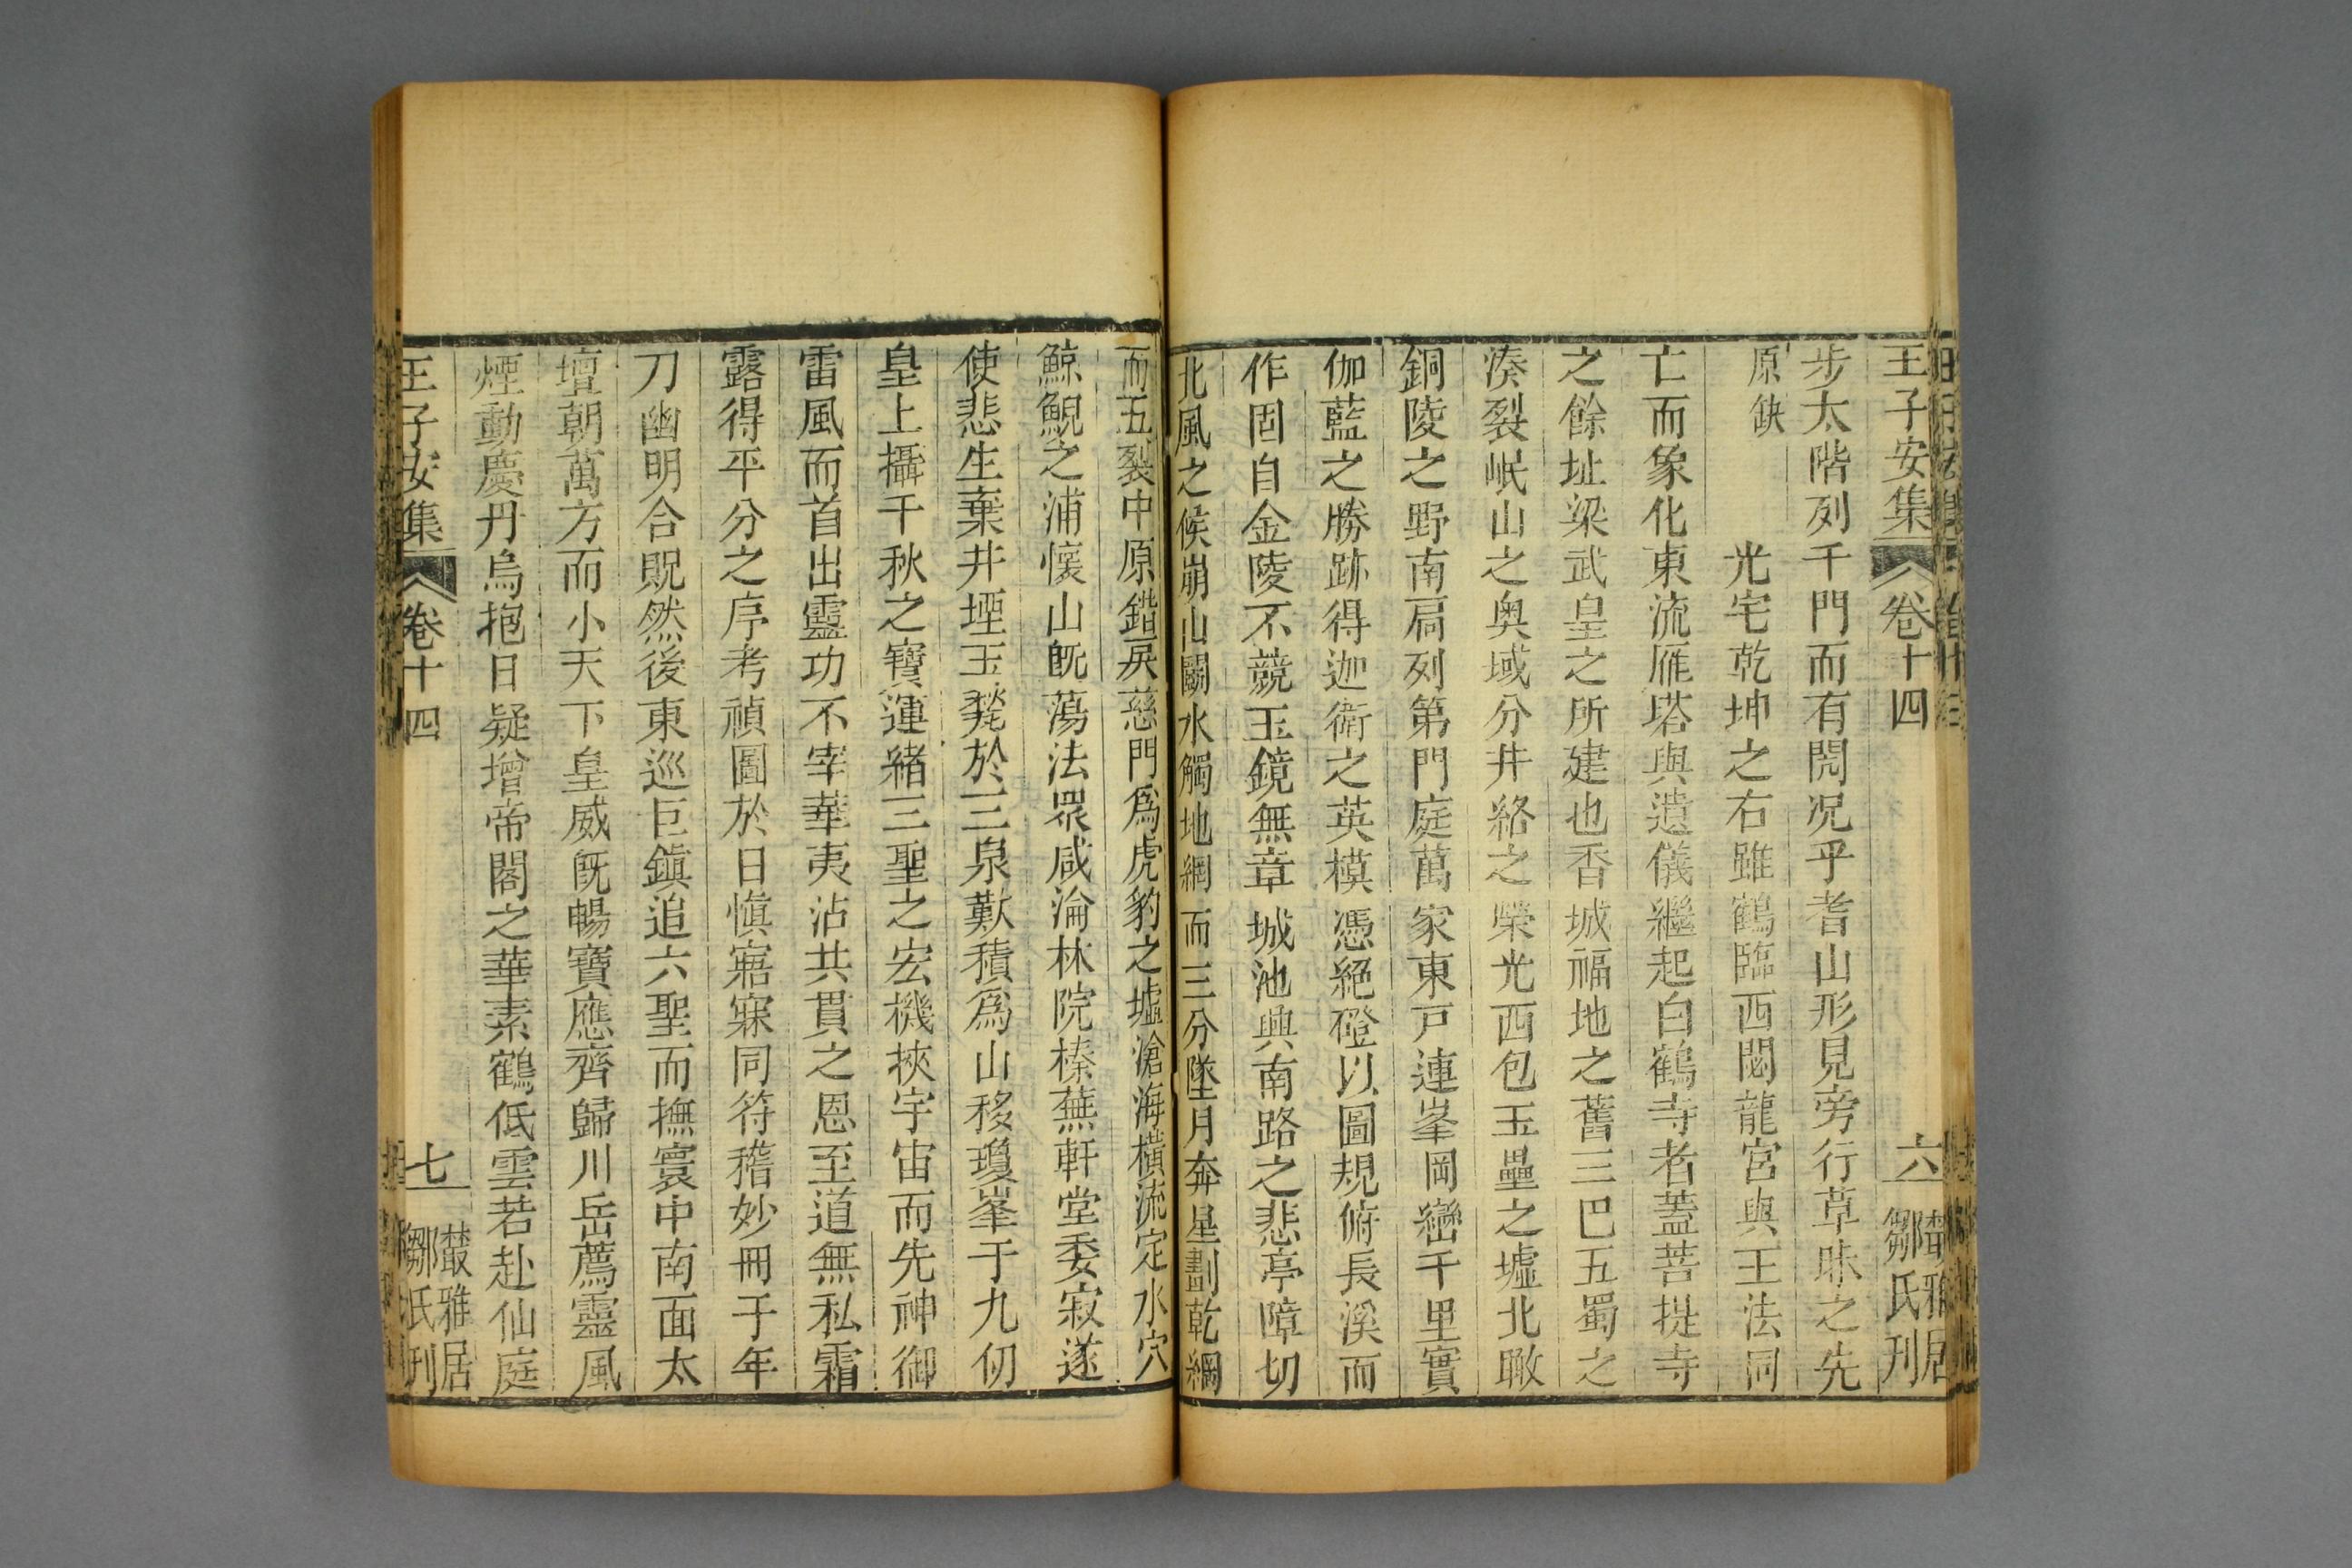 王子安集 卷十四 六 叢雅居鄒氏刊
步太階列千門而有閌况乎耆山形見旁行草昧之先
原缺 光宅乾坤之右雖鶴臨西閟龍宮與王法同
亡而象化東流雁塔與遺儀繼起白鶴寺者蓋菩提寺
之餘址梁武皇之所建也香城福地之舊三巴五蜀之
湊裂岷山之奥域分井絡之榮光西包玉壘之墟北瞰
銅陵之野南扃列第門庭萬家東戸連峯岡巒千里實
伽藍之勝跡得迦衛之英模憑絕磴以圖規俯長溪而
作固自金陵不競玉鏡無章城池興南路之悲亭障切
北風之候崩山關水觸地網而三分墜月奔星劃乾綱
而五裂中原錯戾慈門爲虎豹之墟滄海橫流定水穴
鯨鯢之浦懷山旣蕩法眾咸淪林院榛蕪軒堂委寂遂
使悲生棄井堙玉甃於三泉歎積爲山移瓊峯于九仞
皇上攝千秋之寶運緒三聖之宏機挾宇宙而先神御
雷風而首出靈功不宰華夷沾共貫之恩至道無私霜
露得平分之序考禎圖於日愼寤寐同符稽妙冊于年
刀幽明合貺然後東巡巨鎮追六聖而撫寰中南面太
壇朝萬方而小天下皇威旣暢寶應齊歸川岳薦靈風
煙動慶丹烏抱日疑增帝閣之華素鶴低雲若赴仙庭
王子安集 卷十四 七 叢雅居鄒氏刊